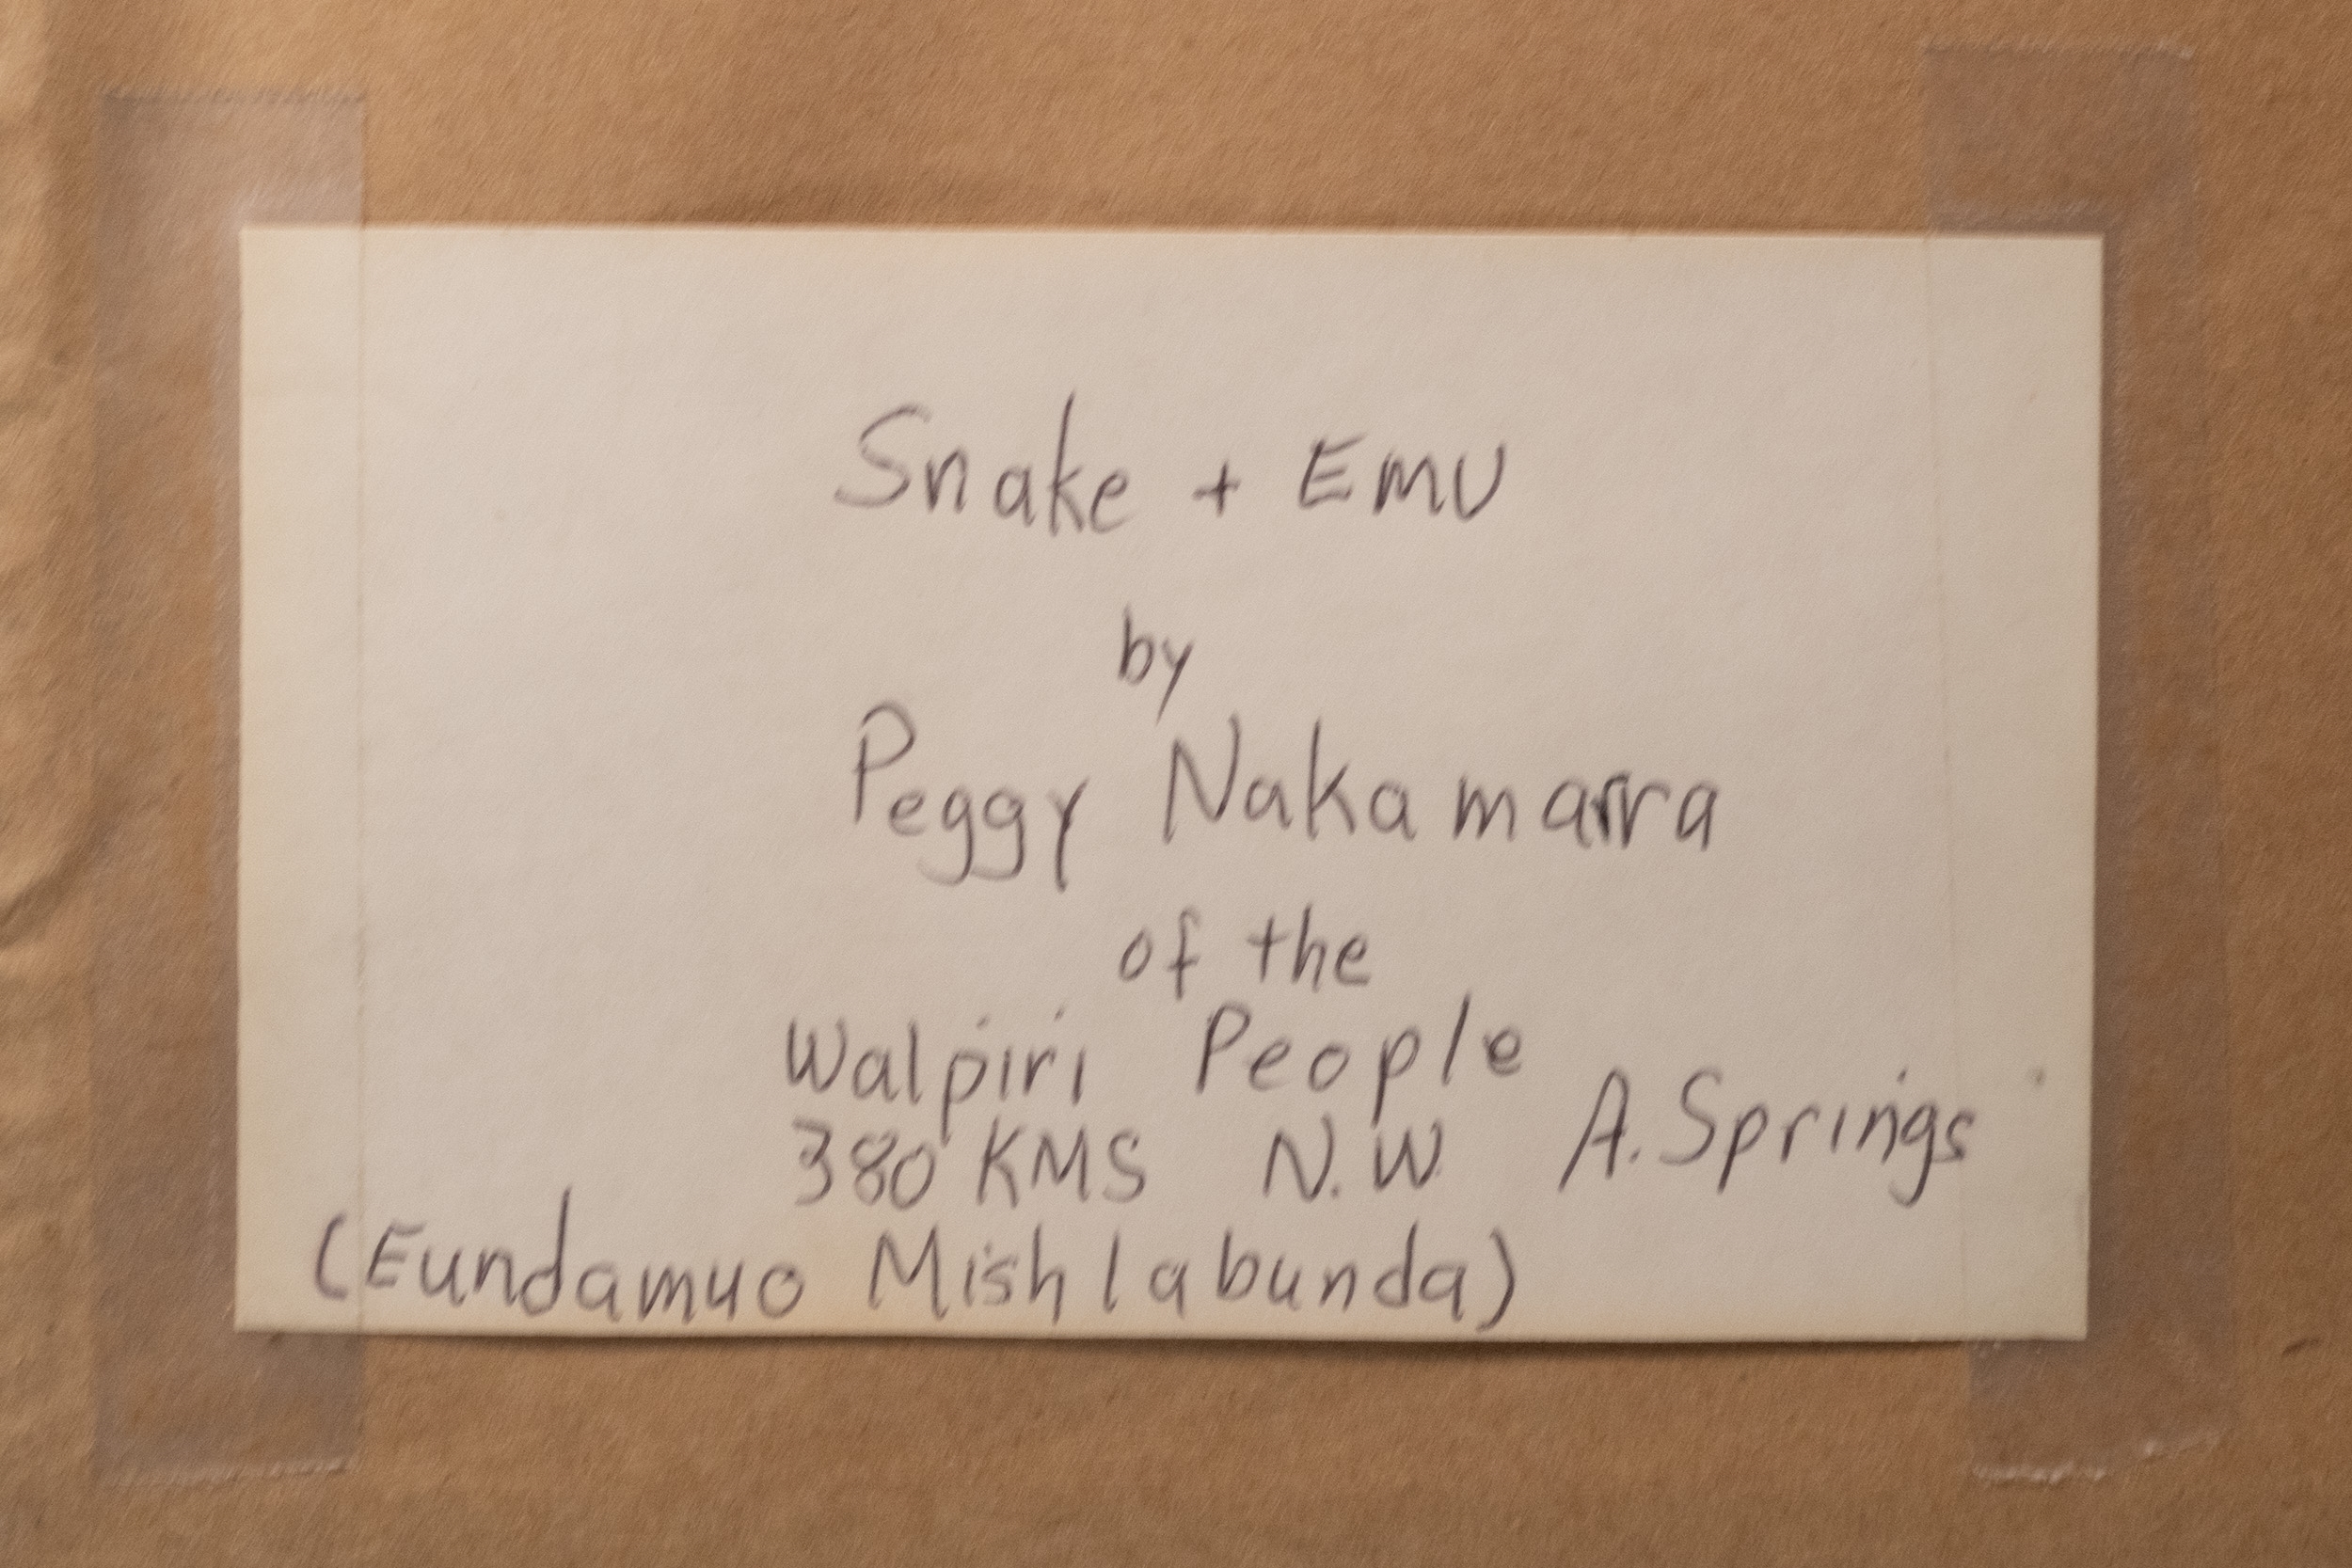 Snake + EMU
by
Peggy Nakamarra
of the
Walpiri People
380 KMS N.W A.Springs
(Eundamuo Mishlabunda)